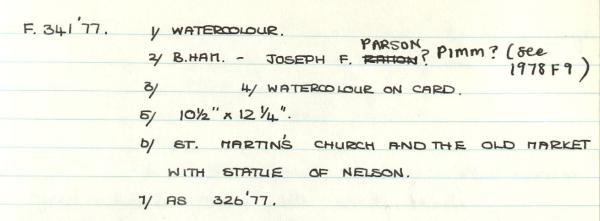 F. 341'77. 1/ WATERCOLOUR.
PARSON
2/ B.HAM. - JOSEPH F. ? Pimm? (see
1978 F9)
3/ 4/ WATERCOLOUR ON CARD.
5/ 10½" x 12 ¼".
6/ ST. MARTIN'S CHURCH AND THE OLD MARKET
WITH STATUE OF NELSON.
7/ AS 326'77.